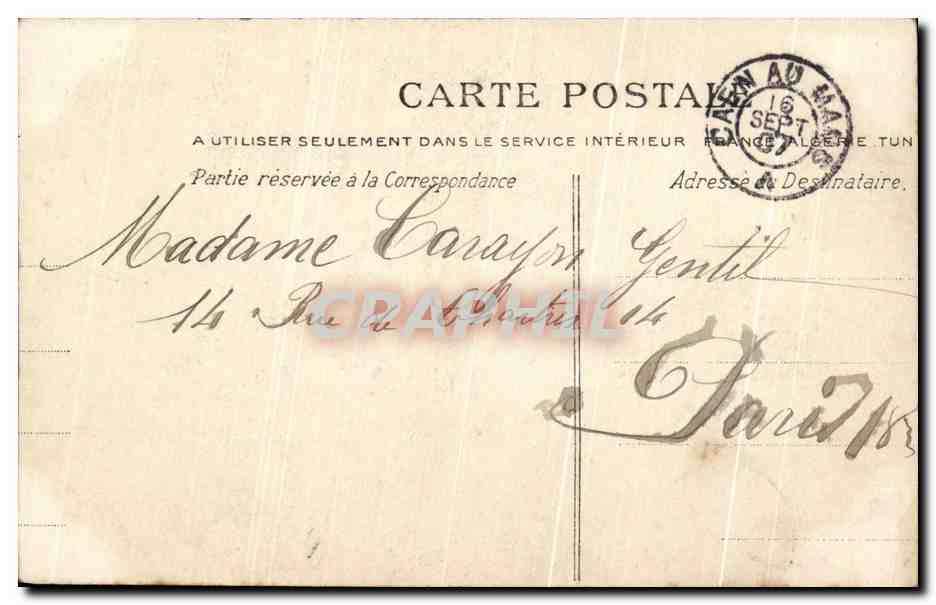 CARTE POSTALE
CAEN AU MANS
16
SEPT
07
A
A UTILISER SEULEMENT DANS LE SERVICE INTÉRIEUR FRANCE ALGÉRIE TUN
Partie réservée à la Correspondance
Adresse du Destinataire.
Madame Carayon Gentil
14 Rue de Chartres 14
Paris 18e
CRAPHIL